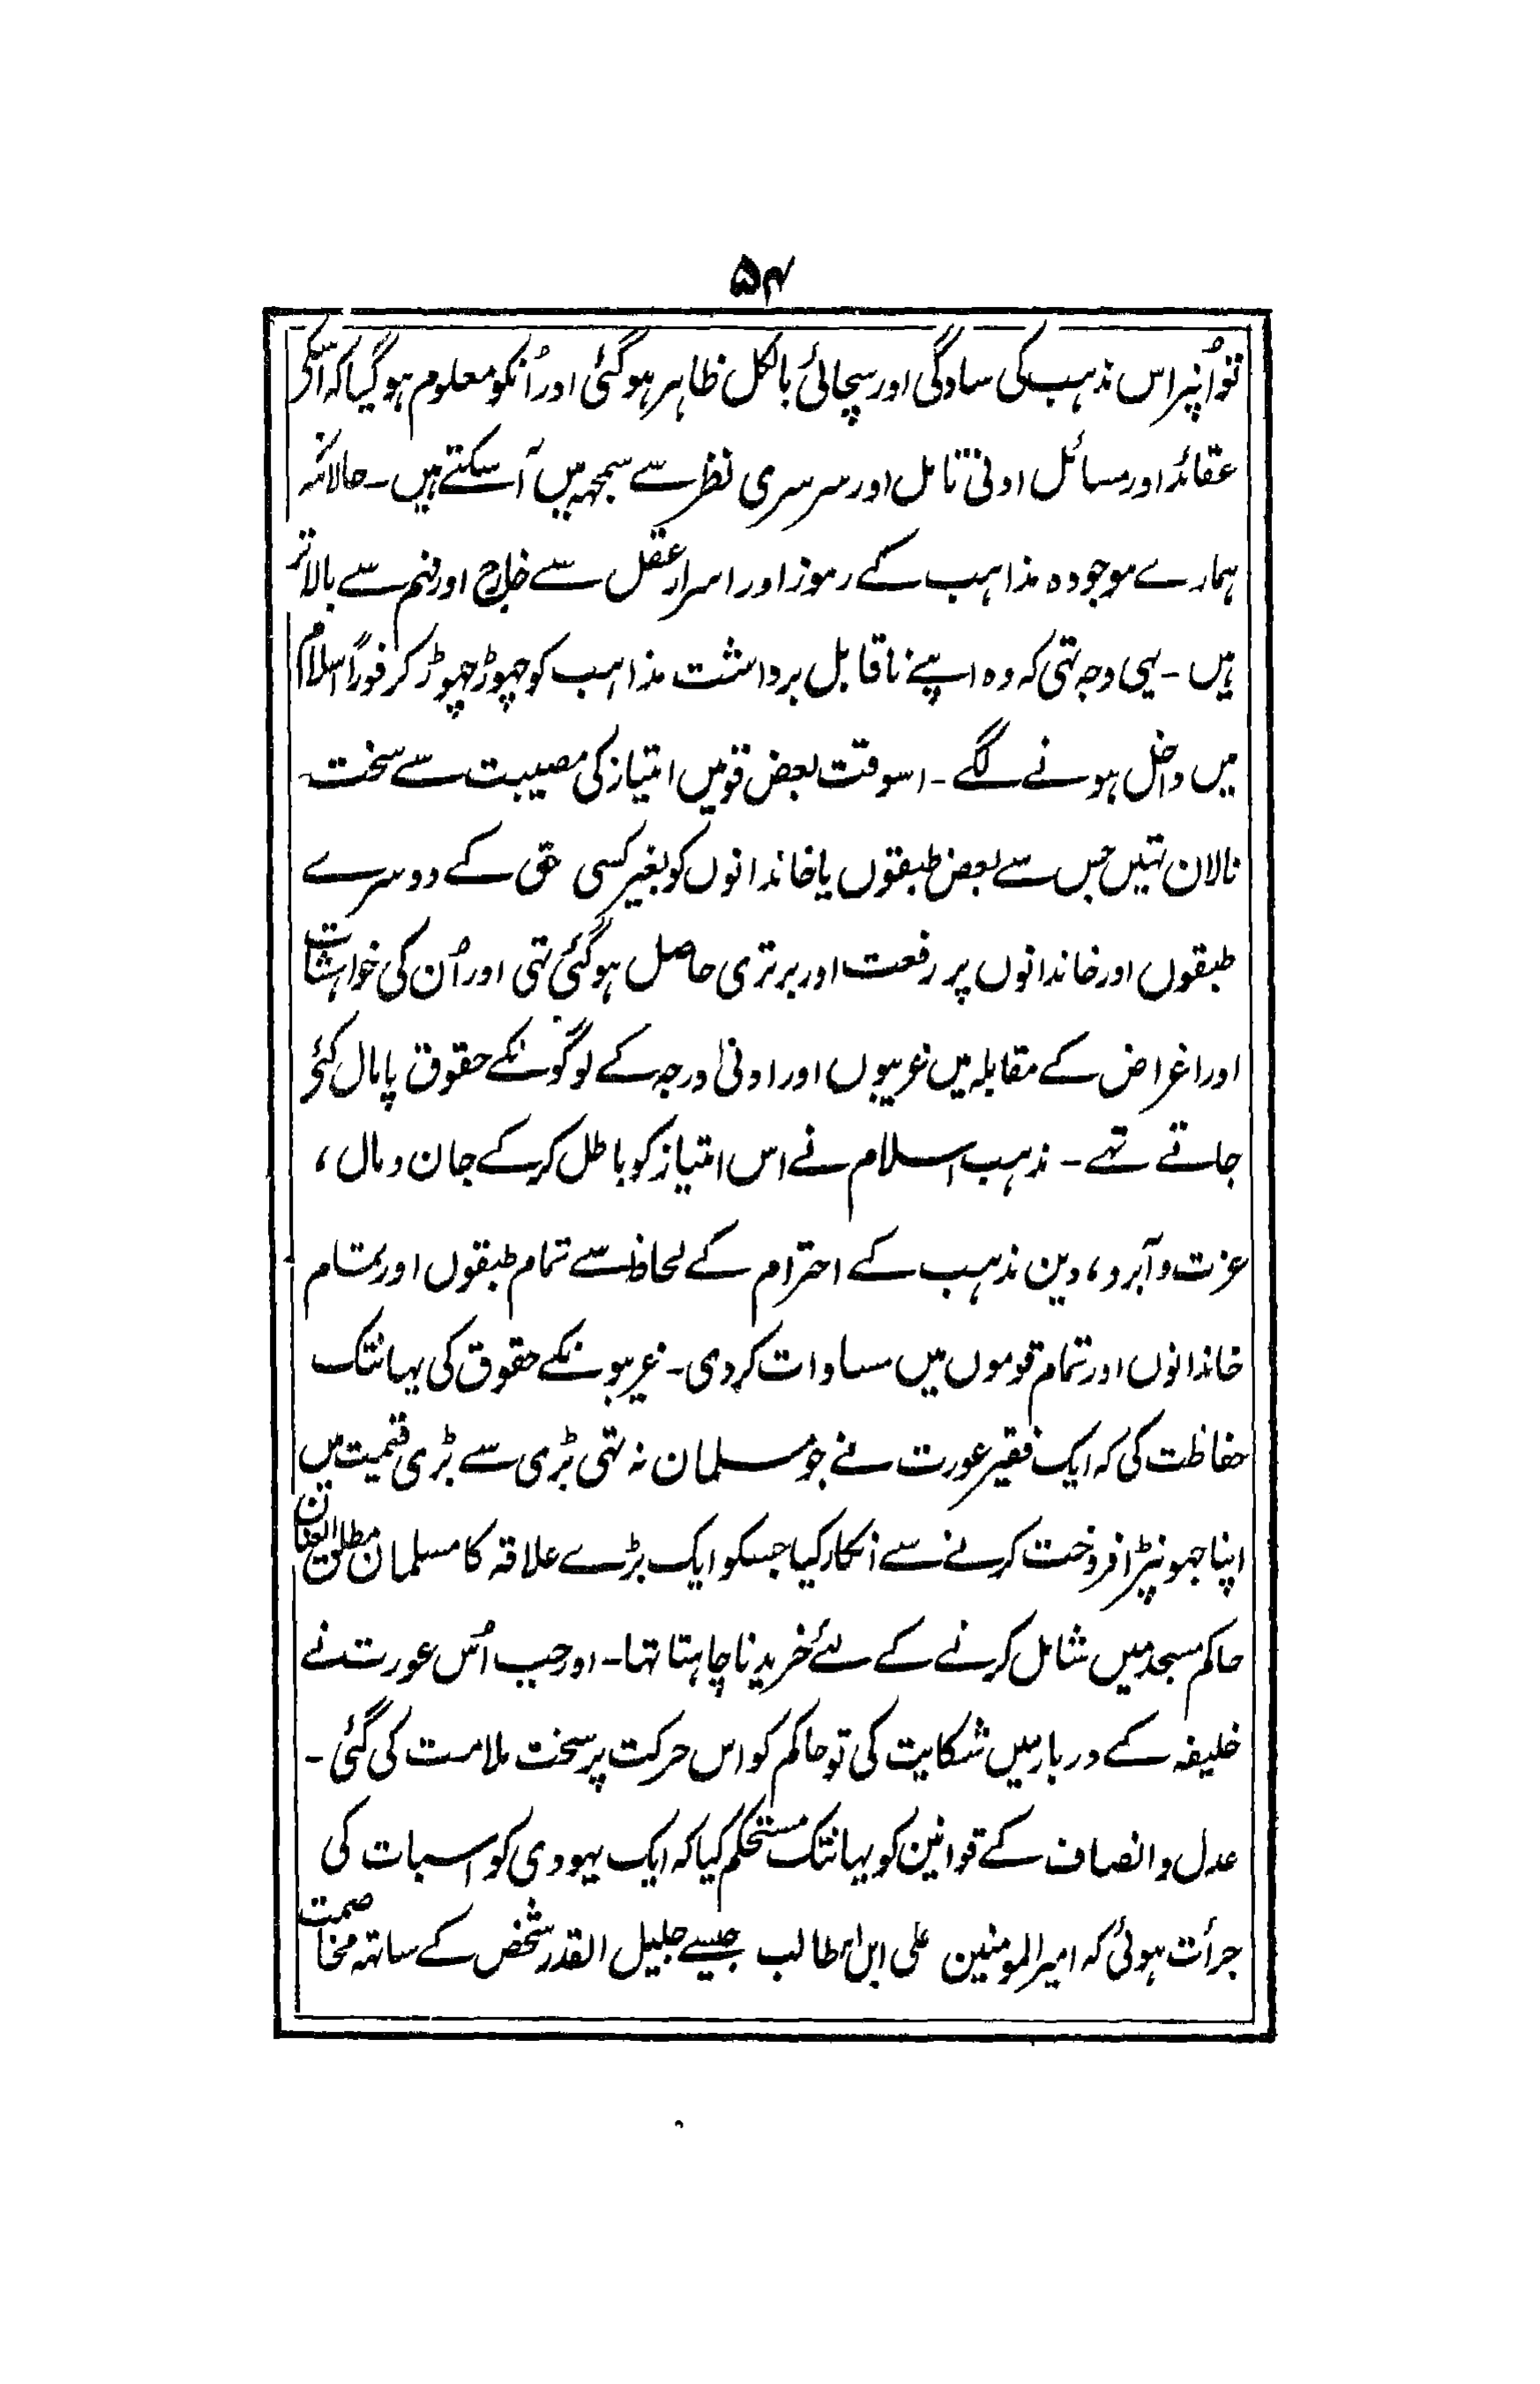 ۵۴
تو اُنپر اس مذہب کی سادگی اور سچائی بالکل ظاہر ہوگئی اور اُنکو معلوم ہوگیا کہ اسکی
عقائد اور مسائل ادنیٰ تامل اور سرسری نظر سے سمجھ میں آ سکتے ہیں ۔ حالانکہ
ہمارے موجودہ مذاہب کے رموز اور اسرار عقل سے خارج اور فہم سے بالاتر
ہیں ۔ یہی وجہ تہی کہ وہ اپنے ناقابل برداشت مذاہب کو چہوڑ چہوڑ کر فوراً اسلام
میں داخل ہونے لگے ۔ اسوقت بعض قومیں امتیاز کی مصیبت سے سخت
نالان تہیں جس سے بعض طبقوں یا خاندانوں کو بغیر کسی حق کے دوسرے
طبقوں اور خاندانوں پر رفعت اور برتری حاصل ہوگئی تہی اور اُن کی خواہشات
اور اغراض کے مقابلہ میں غریبوں اور ادنیٰ درجہ کے لوگونکے حقوق پامال کئے
جاتے تہے ۔ مذہب اسلام نے اس امتیاز کو باطل کرکے جان و مال ،
عزت و آبرو ، دین مذہب کے احترام کے لحاظ سے تمام طبقوں اور تمام
خاندانوں اور تمام قوموں میں مساوات کردی ۔ غریبونکے حقوق کی یہانتک
حفاظت کی کہ ایک فقیر عورت نے جو مسلمان نہ تہی بڑی سے بڑی قیمت میں
اپنا جہونپڑا فروخت کرنے سے انکار کیا جسکو ایک بڑے علاقہ کا مسلمان مطلق العنان
حاکم مسجد میں شامل کرنے کے لئے خریدنا چاہتا تہا ۔ اور جب اُس عورت نے
خلیفہ کے دربار میں شکایت کی تو حاکم کو اس حرکت پر سخت ملامت کی گئی ۔
عدل و انصاف کے قوانین کو یہانتک مستحکم کیا کہ ایک یہودی کو اسبات کی
جرأت ہوئی کہ امیر المومنین علی ابن ابیطالب جیسے جلیل القدر شخص کے ساتہ مخاصمت